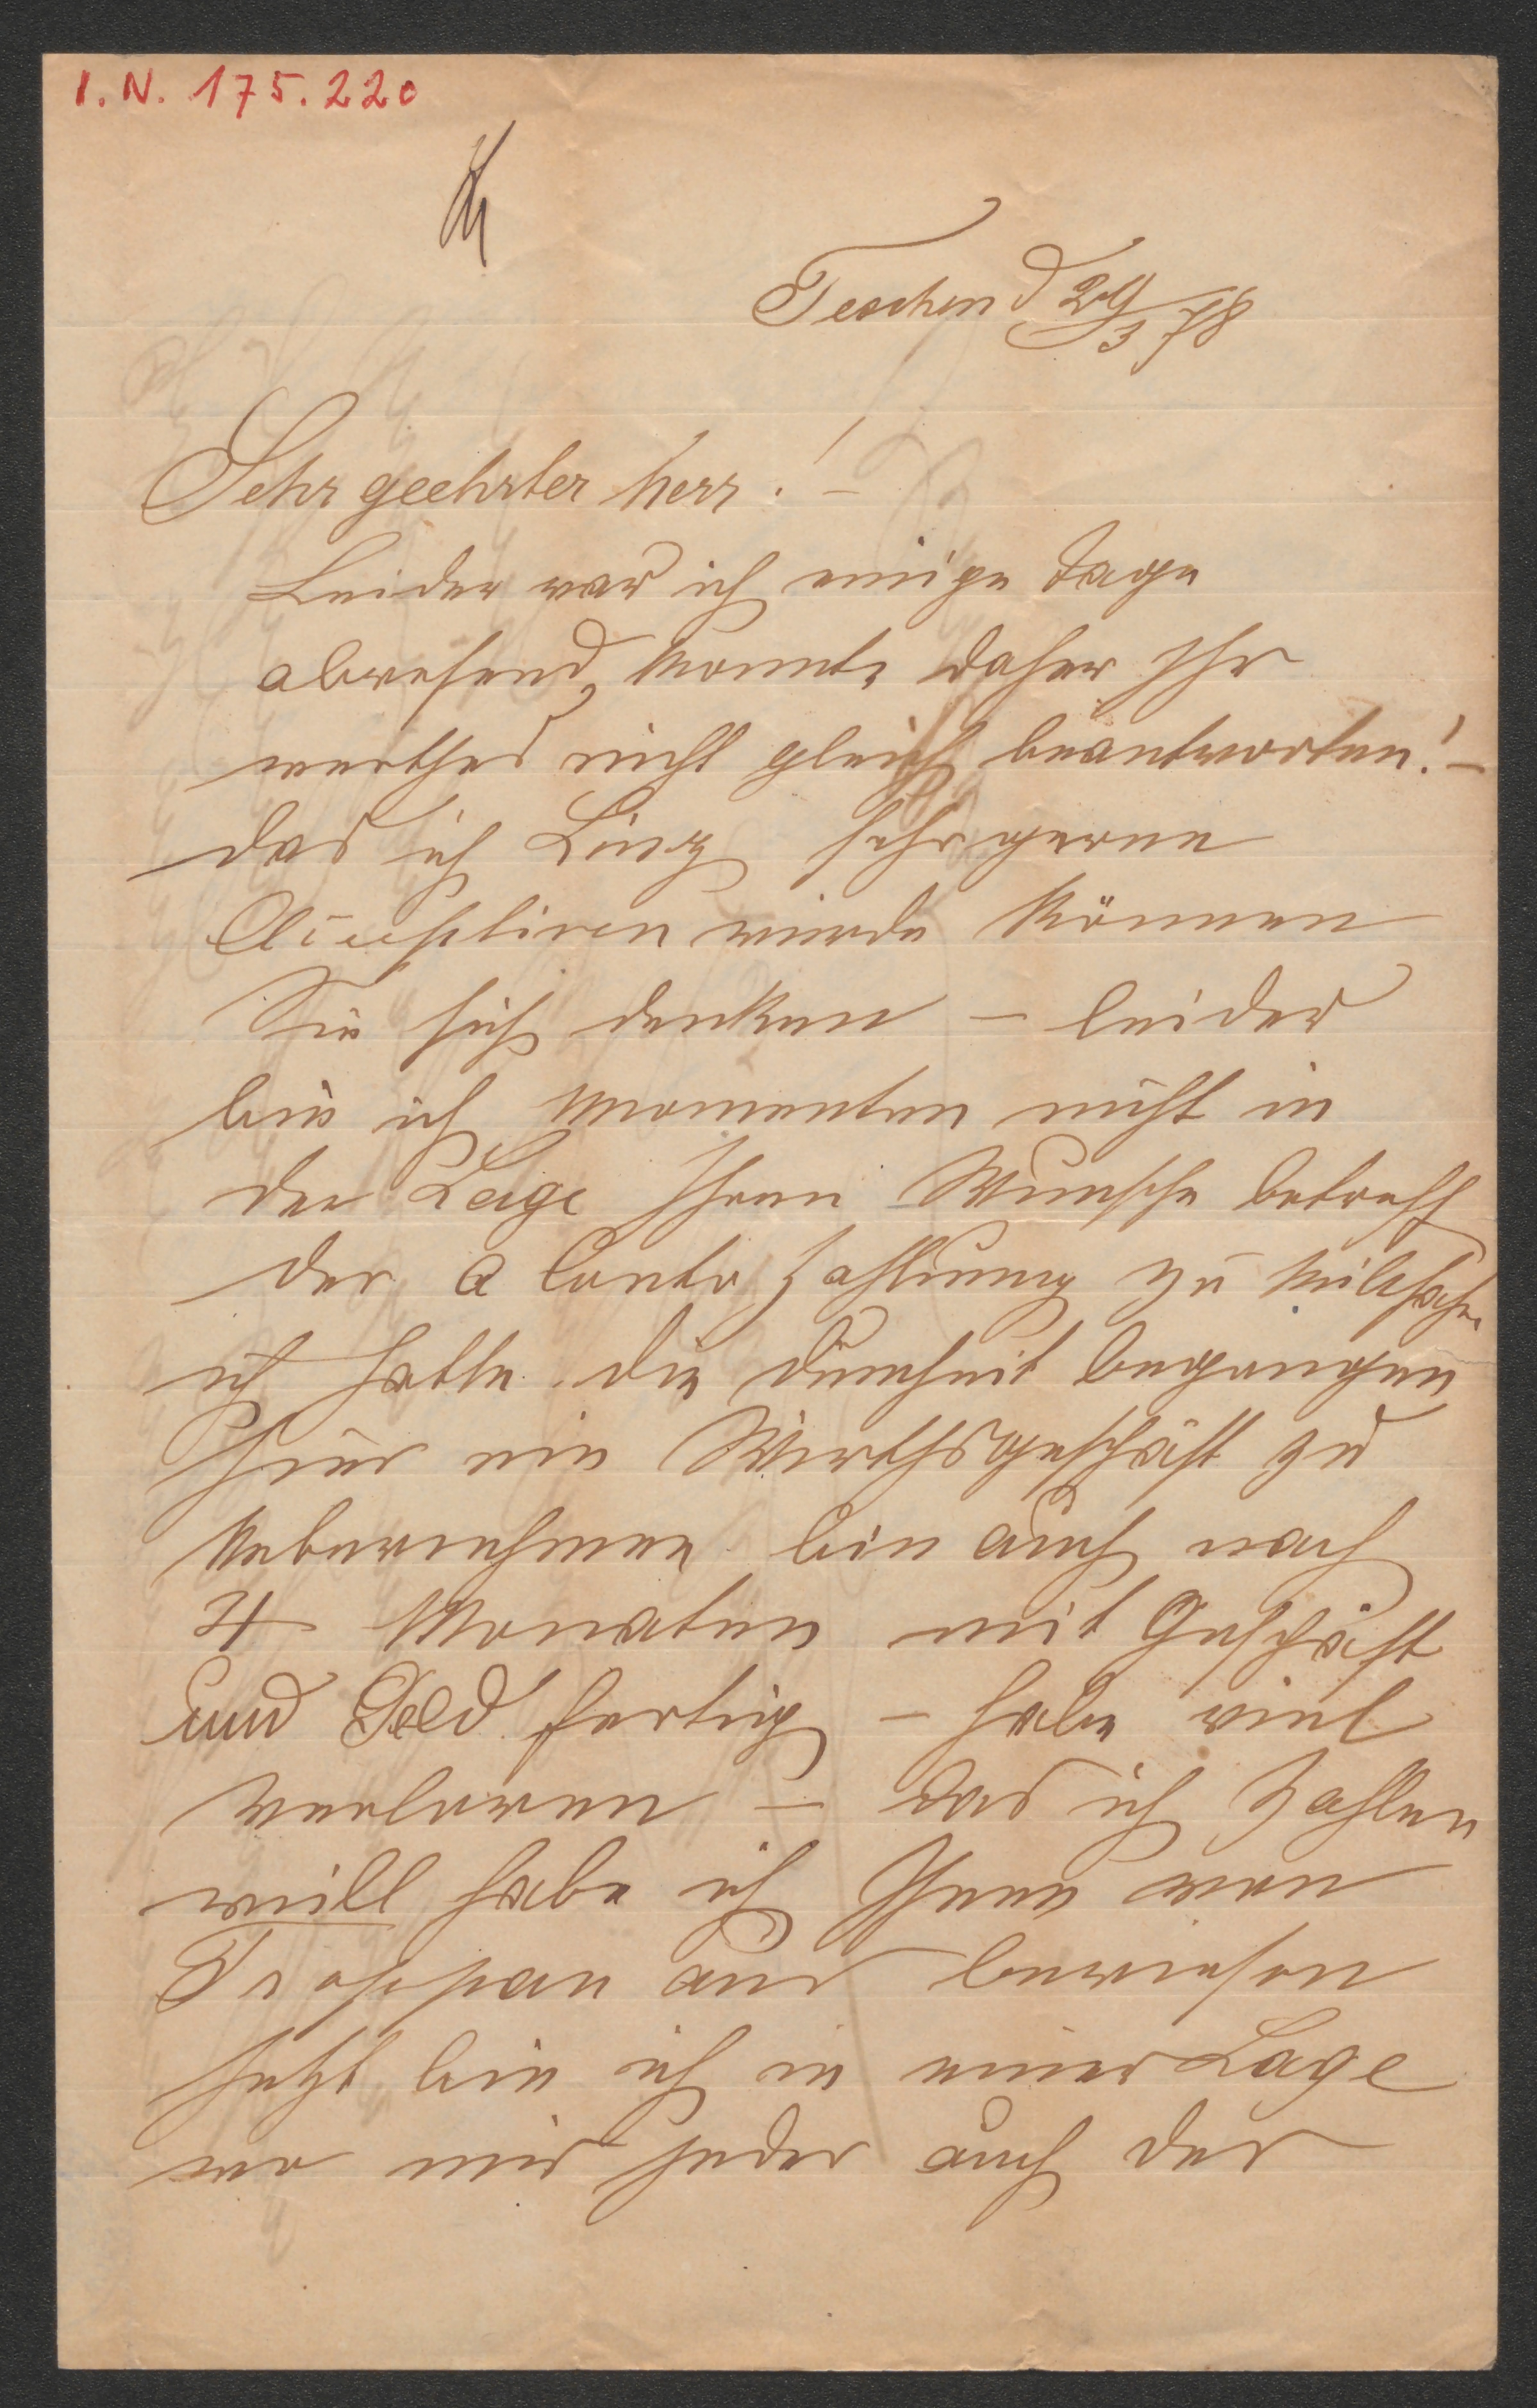 I. N. 175.220
Teschen d 29/3 78
Sehr geehrter Herr! –
Leider war ich einige Tage
abwesend, konnte daher Ihr
werthes nicht gleich beantworten! –
das ich Linz sehr gerne
Acceptiren würde können
Sie sich denken – leider
bin ich momenten nicht in
der Lage Ihren Wunsche betreff
der a Conto Zahlung zu
ich hatte die Dumheit begangen
hier ein Wirthsgeschäft zu
Uebernehmen bin auch nach
4 Monaten mit Geschäft
und Geld fertig – habe viel
verloren – das ich Zahlen
will habe ich Ihnen von
Troppau aus bewiesen
jetzt bin ich in einer Lage
wo mir jeder auch der